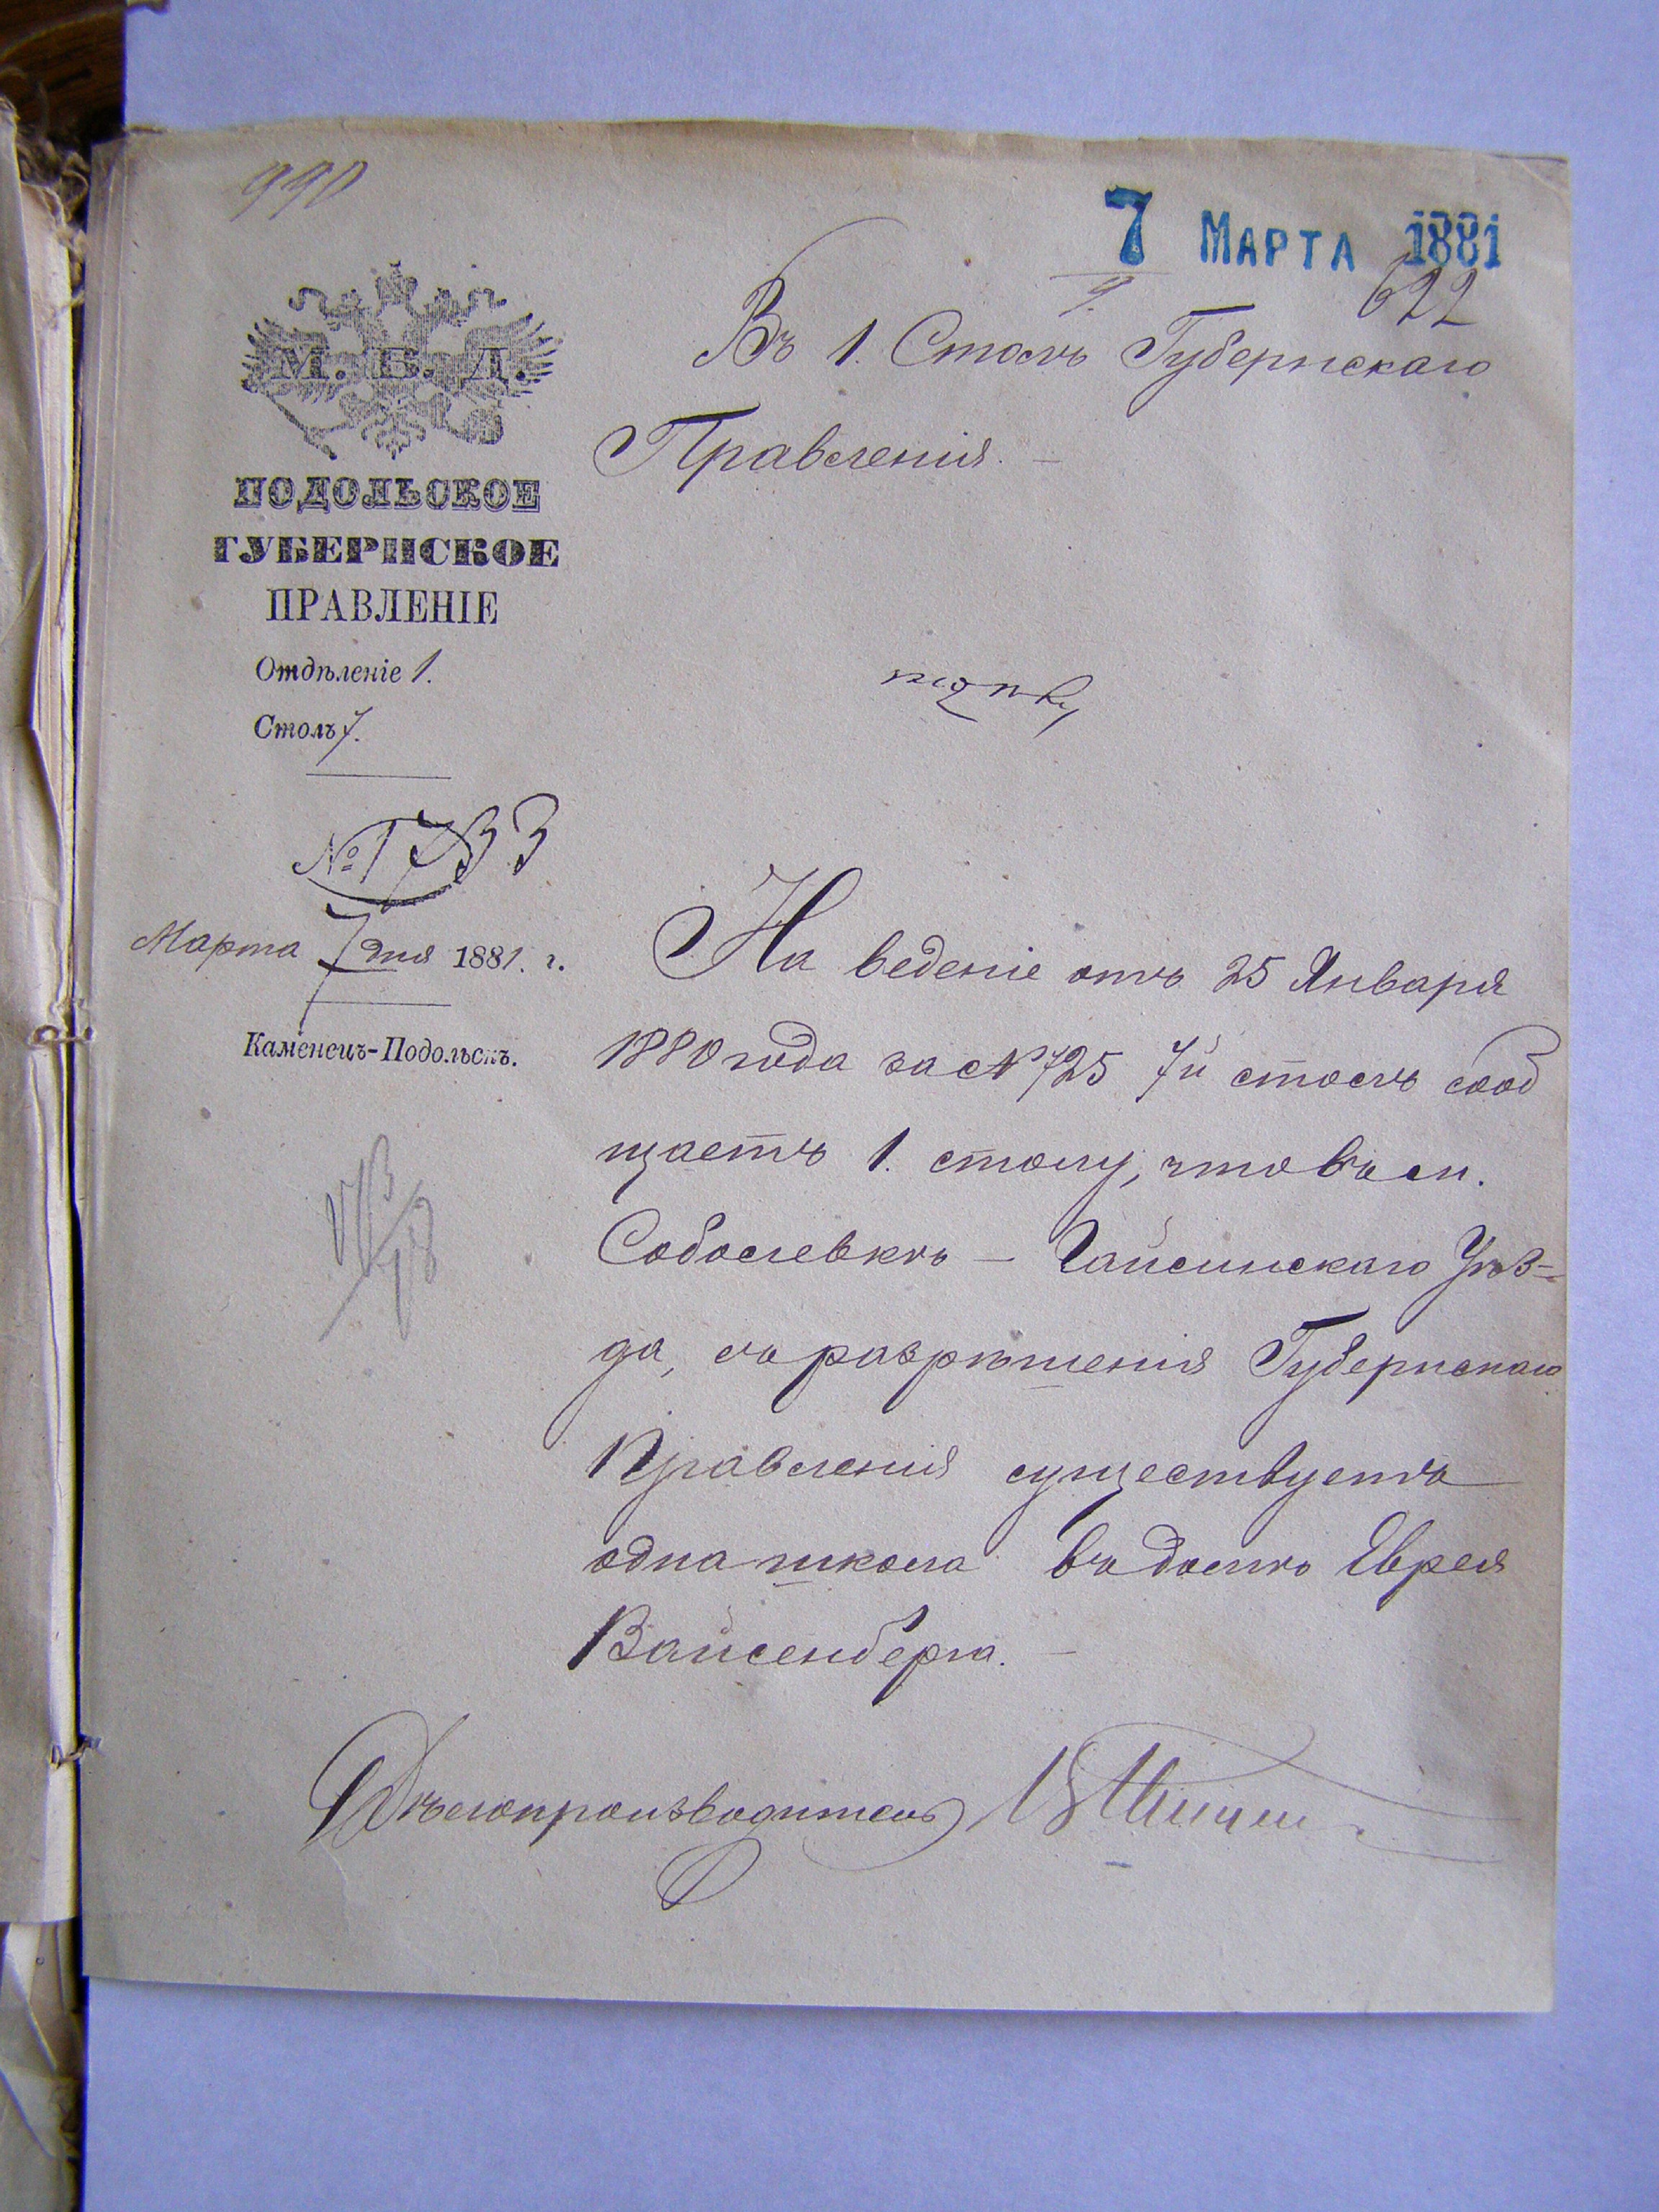 990
7 МАРТА 1881
622
М. В. Д.
ПОДОЛЬСКОЕ
ГУБЕРНСКОЕ
ПРАВЛЕНІЕ
Отдѣленіе 1.
Столъ 7.
№ 1733
Марта 7 дня 1881. г.
Каменецъ-Подольскъ.
Въ 1. Столъ Губернскаго
Правленія. –
На веденіе отъ 25 Января
1880 года за № 725 7й столъ сооб
щаетъ 1. столу, что въ м.
Соболевкѣ – Гайсинскаго Уѣз-
да, съ разрѣшенія Губернскаго
Правленія существуетъ
одна школа въ домѣ Еврея
Вайсенберга. –
Дѣлопроизводитель